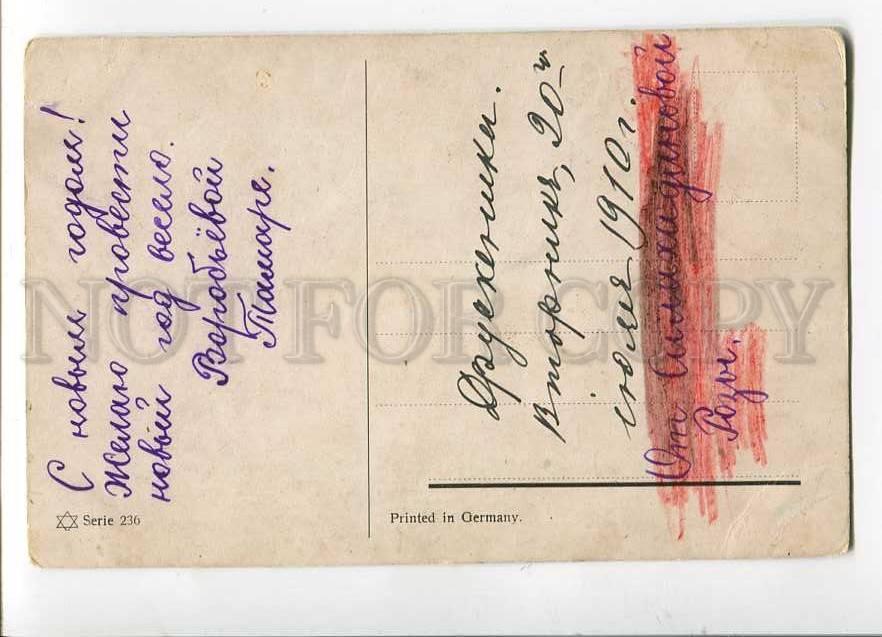 С новым годом!
Желаю провести
новый год весело.
Воробьёвой
Тамаре.
Друскеники.
Вторникъ, 20-го
июля 1910 г.
От
Розы.
Serie 236
Printed in Germany.
NOT FOR COPY